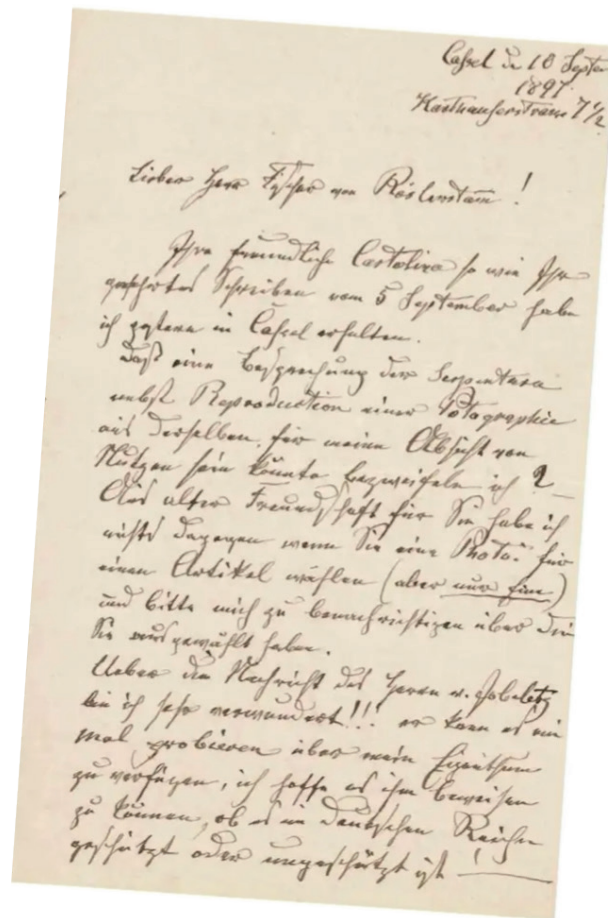 Cassel d. 10 Septem
1897.
Karthäuserstrasse 7 1/2
Lieber Herr Fischer von Röslerstamm!
Ihre freundliche Cartolina so wie Ihr
geehrtes Schreiben vom 5 September habe
ich gestern in Cassel erhalten.
Daß eine Besprechung der Serpentara
nebst Reproduction einer Potographie
aus derselben, für meine Absicht von
Nutzen sein könnte bezweifele ich ? —
Aus alter Freundschaft für Sie habe ich
nichts dagegen wenn Sie eine Photo. für
einen Artikel wählen (aber nur eine)
und bitte mich zu benachrichtigen über die
Sie ausgewählt haben.
Ueber die Nachricht des Herrn v.
bin ich sehr verwundert!!! er kann es ein
mal probieren über mein Eigenthum
zu verfügen, ich hoffe es ihm beweisen
zu können, ob es im Deutschen Reiche
geschützt oder ungeschützt ist ! —